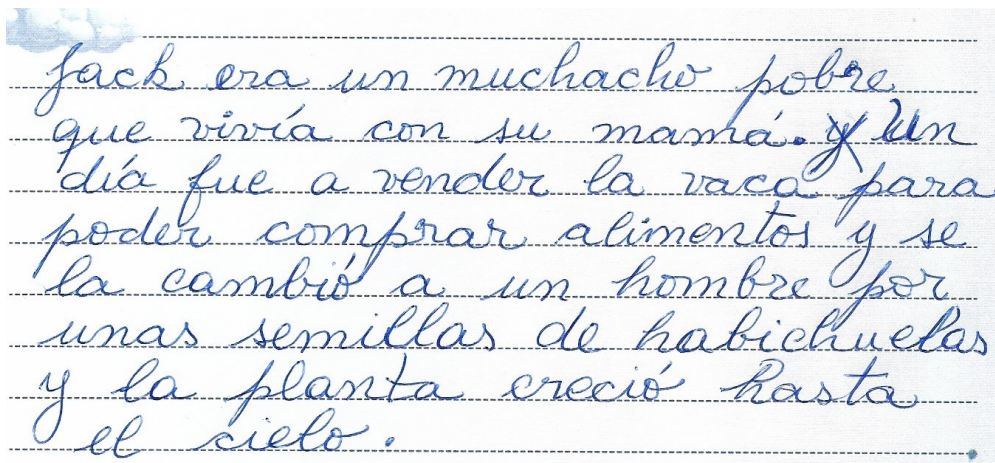 Jack era un muchacho pobre
que vivía con su mamá. y Un
día fue a vender la vaca para
poder comprar alimentos y se
la cambió a un hombre por
unas semillas de habichuelas
y la planta creció hasta
el cielo.